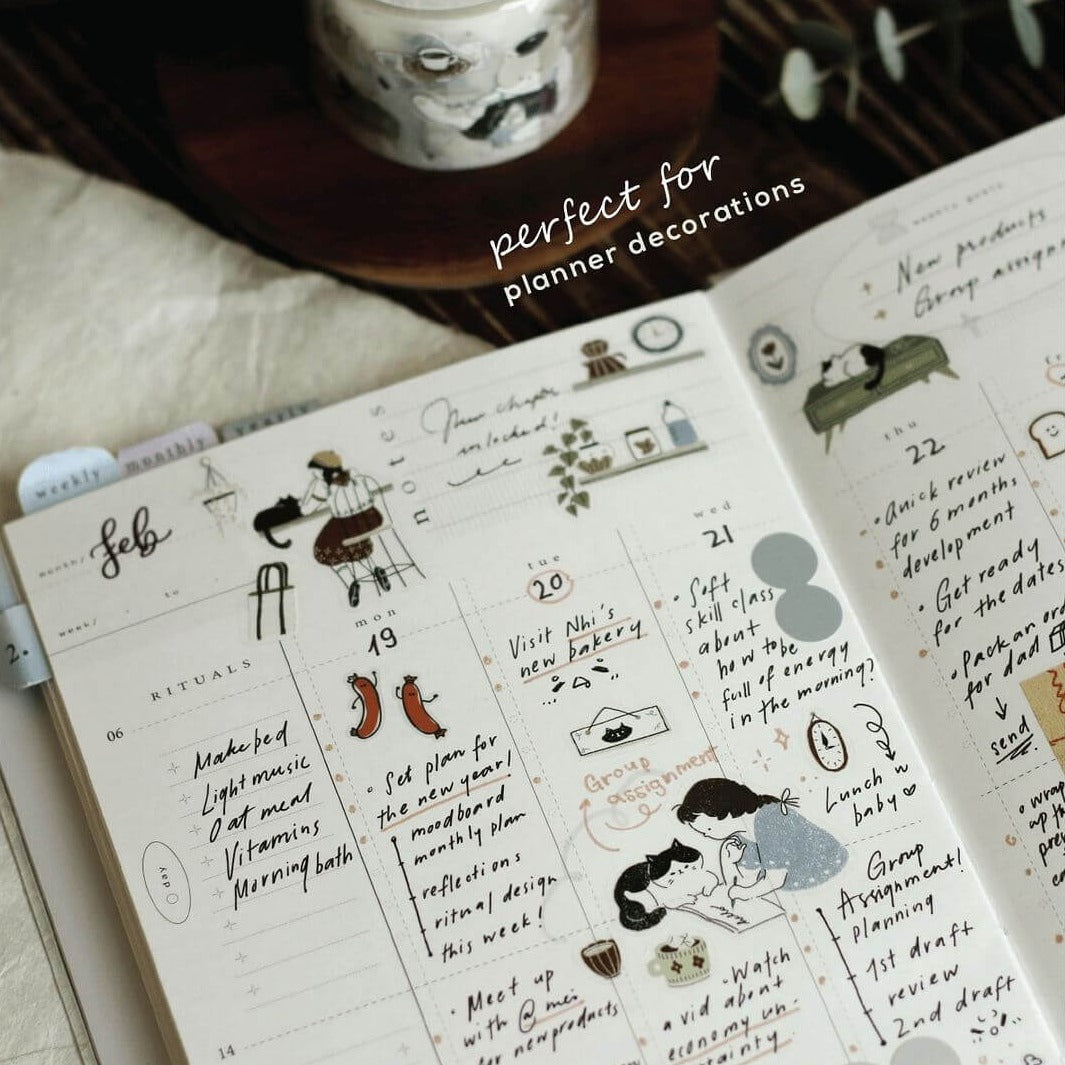 perfect for
planner decorations
weekly
monthly
yearly
month/
feb
to
week/
notes
New chapter
unlocked!
RITUALS
06
Make bed
Light music
Oat meal
Vitamins
Morning bath
day
14
2.
mon
19
• Set plan for
the new year!
moodboard
monthly plan
reflections
ritual design
this week!
• Meet up
with @mei
for new products
tue
20
Visit Nhi's
new bakery
Group
assignment
hello
• Watch
a vid about
economy un-
wed
21
• Soft
skill class
about
how to be
full of energy
in the morning?
Lunch w
baby ♡
Group
Assignment!
planning
1st draft
review
2nd draft
New products
Group
thu
22
• Quick review
for 6 months
development
• Get ready
for the dates
• Pack an
for dad
send